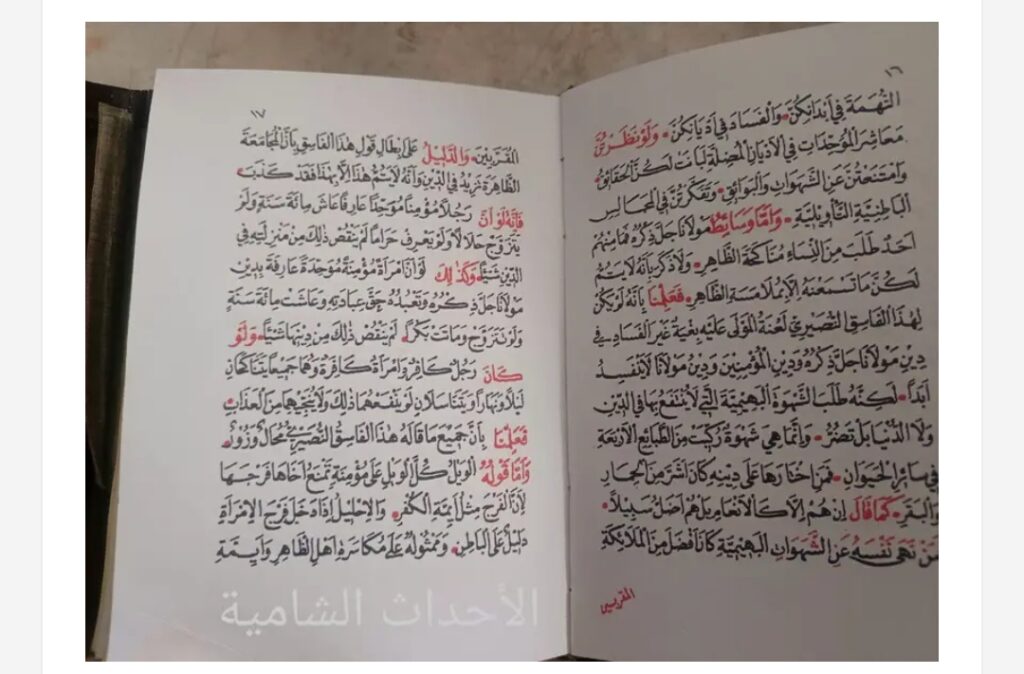 ١٦
التهمة في أبدانكنّ. والفساد في أديانكنّ. ولو نظرتنّ
معاشر الموحدات في الأديان المضلة لبانت لكنّ الحقائق
وامتنعتن عن الشهوات والبوائق. وتفكرتنّ في المجالس
الباطنية التأويلية. وأما وسائط مولانا جل ذكره فما منهم
أحد طلب من النساء مناكحة الظاهر. ولا ذكر بأنه لا يتم
لكن ما تسمعنه إلا بملامسة الظاهر. فعلمنا بأنه لم يكن
لهذا الفاسق النصيري لعنة المولى عليه بغية غير الفساد في
دين مولانا جل ذكره ودين المؤمنين ودين مولانا لا ينفسد
أبدًا. لكنه طلب الشهوة البهيمية التي لا ينتفع بها في الدين
ولا الدنيا بل تضرّ. وإنما هي شهوة ركبت من الطبائع الأربعة
في سائر الحيوان. فمن اختارها على دينه كان أشر من الحمار
والبقر. كما قال إن هم إلا كالأنعام بل هم أضل سبيلا.
فمن نهى نفسه عن الشهوات البهيمية كان أفضل من الملائكة
المقربين
١٧
المقربين. والدليل على إبطال قول هذا الفاسق بأن المجامعة
الظاهرة تزيد في الدين وأنه لا يتم هذا إلا بهذا فقد كذب.
فإنه لو أن رجلاً مؤمنا موحدًا عارفا عاش مائة سنة ولو
يتزوج حلالاً ولو يعرف حراما لم ينقص ذلك من منزلته في
الدين شيئًا. وكذلك لو أن امرأة مؤمنة موحدة عارفة بدين
مولانا جل ذكره وتعبده حق عبادته وعاشت مائة سنة
ولو تتزوج وماتت بكرًا. لم ينقص ذلك من دينها شيئًا. ولو
كان رجل كافر وامرأة كافرة وهما جميعا يتناكحان
ليلاً ونهارًا ويتناسلان لم ينفعهما ذلك ولا ينجيهما من العذاب.
فعلمنا بأن جميع ما قاله هذا الفاسق النصيري محال وزور.
وأما قوله الويل كل الويل على مؤمنة تمنع أخاها فرجها
لأن الفرج مثل أئمة الكفر. والإحليل إذا دخل فرج الامرأة
دليل على الباطن. وممثوله على مكاسرة أهل الظاهر وأئمة
الأحداث الشامية